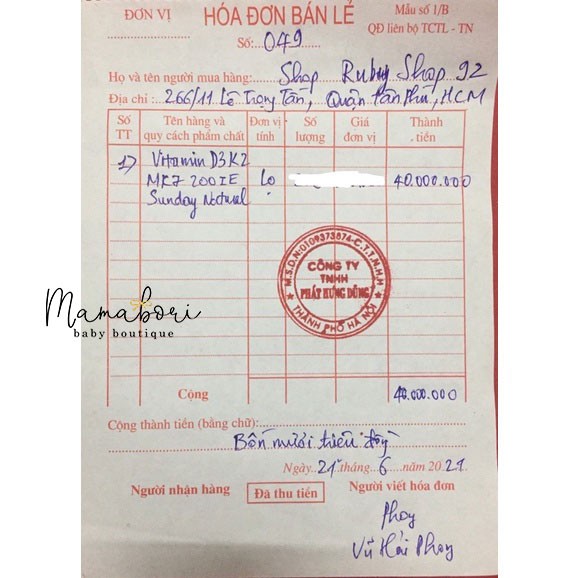 ĐƠN VỊ
HÓA ĐƠN BÁN LẺ
Mẫu số 1/B
QĐ liên bộ TCTL - TN
Số: 049
Họ và tên người mua hàng: Shop Ruby Shop 92
Địa chỉ: 266/11 Lê Trọng Tấn, Quận Tân Phú, HCM
Số TT
Tên hàng và quy cách phẩm chất
Đơn vị tính
Số lượng
Giá đơn vị
Thành tiền
1) Vitamin D3K2
MK7 200IE Lọ 40.000.000
Sunday Natural
M.S.D.N:0109373874-C.T.T.N.H.H
CÔNG TY
TNHH
PHÁT HƯNG DŨNG
THÀNH PHỐ HÀ NỘI
Mamabori
baby boutique
Cộng 40.000.000
Cộng thành tiền (bằng chữ):
Bốn mươi triệu đồng
Ngày 21 tháng 6 năm 2021
Người nhận hàng
Đã thu tiền
Người viết hóa đơn
Phay
Vũ Hải Phay